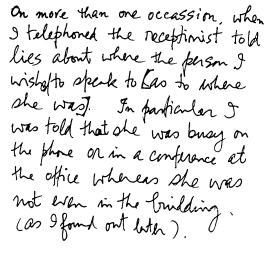 On more than one occassion, when
I telephoned the receptionist told
lies about where the person I
wished to speak to [as to where
she was]. In particular I
was told that she was busy on
the phone or in a conference at
the office whereas she was
not even in the building.
(as I found out later).